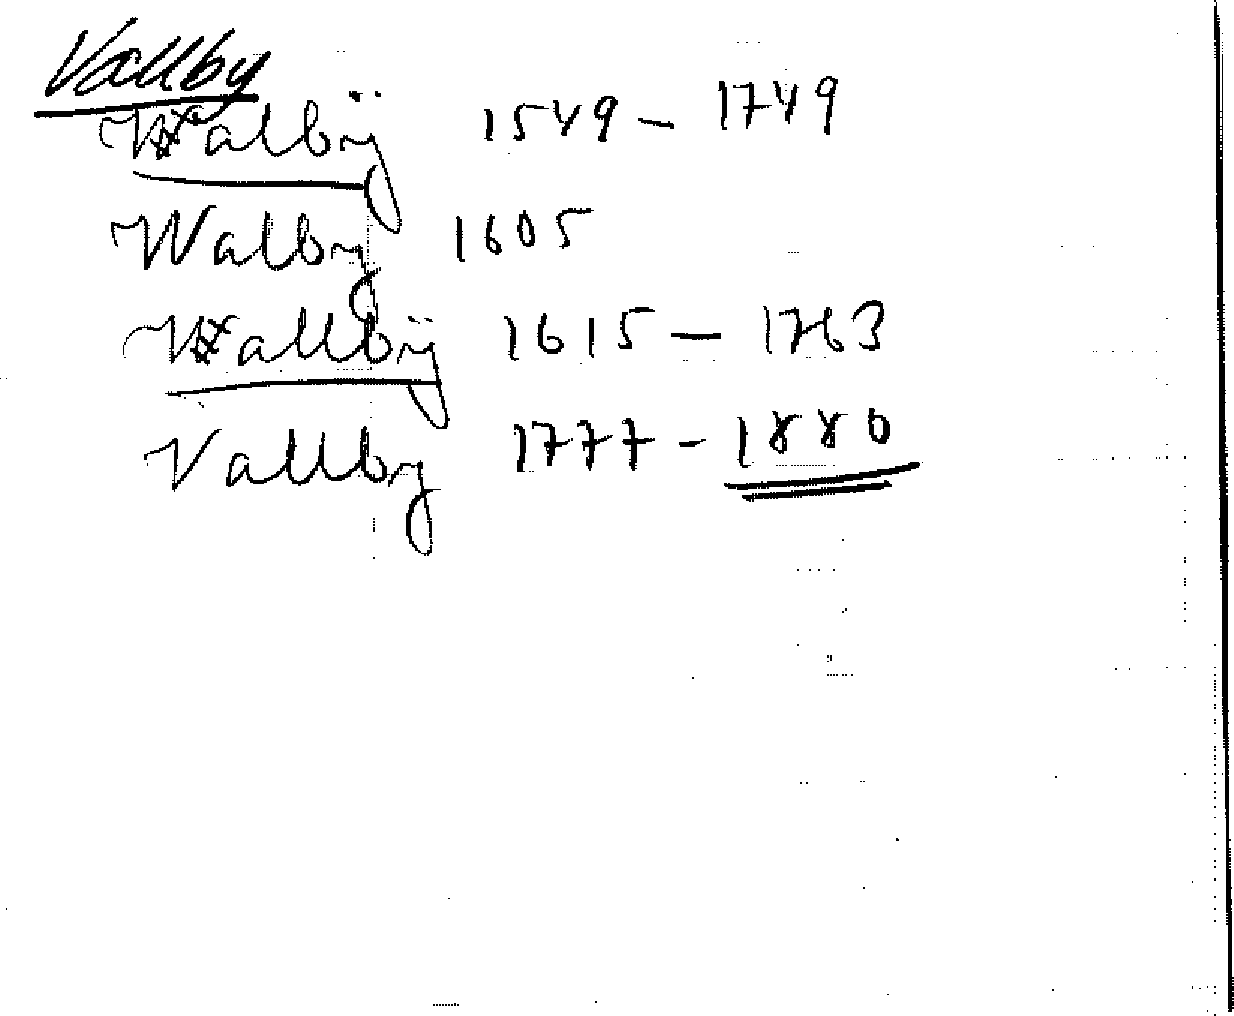 Vallby
Walbÿ 1549 - 1749
Walby 1605
Wallbÿ 1615 - 1763
Vallby 1777 - 1880